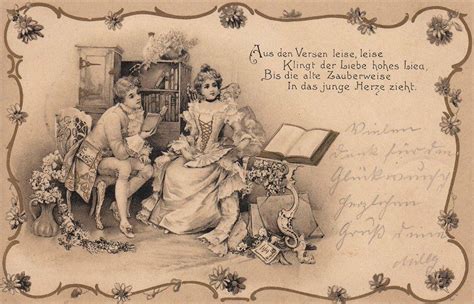 Aus den Versen leise, leise
Klingt der Liebe hohes Lied,
Bis die alte Zauberweise
In das junge Herze zieht.
Vielen
dank für den
Glückwunsch
Gruß deine
Milly